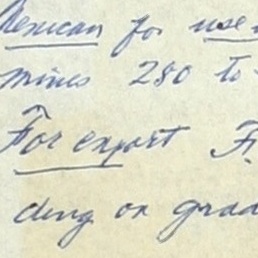 Mexican for use
mines 280 to
For export F.
ding on grad